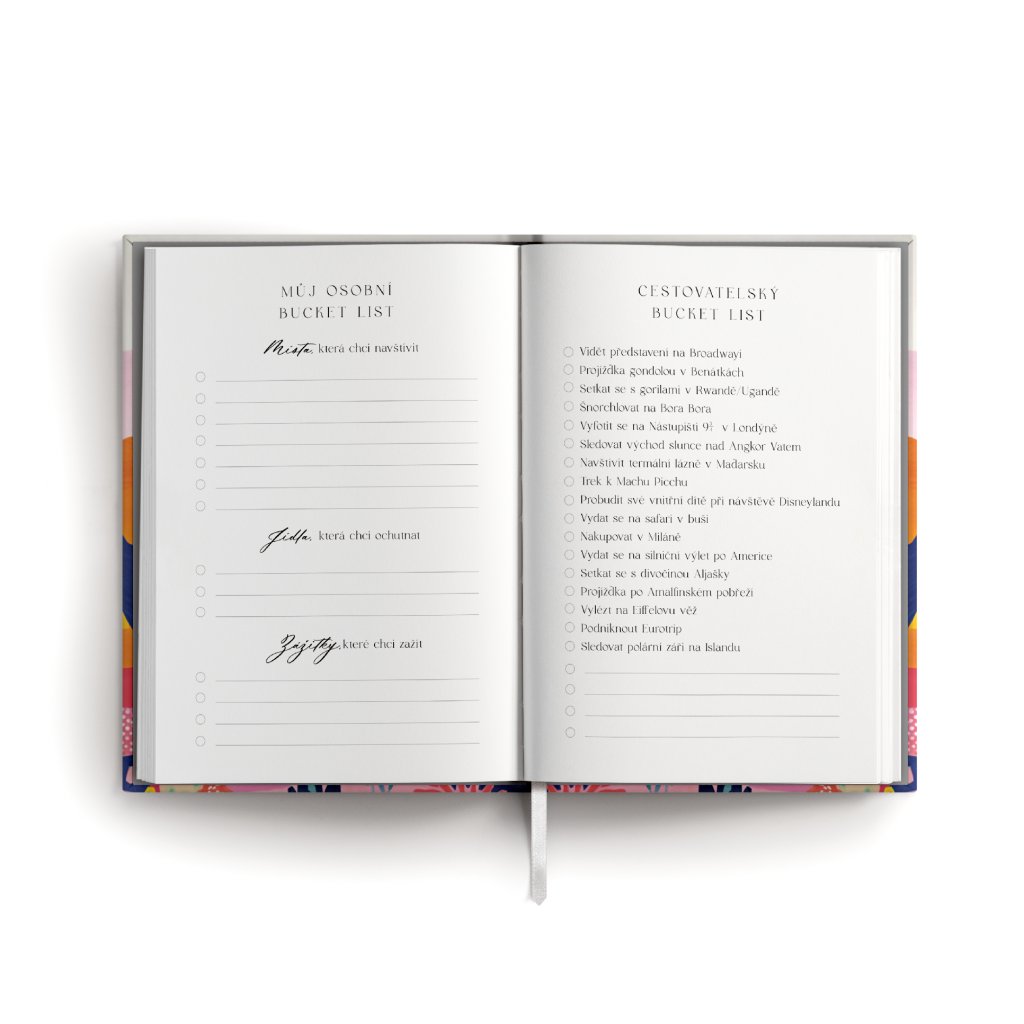 MŮJ OSOBNÍ
BUCKET LIST
Místa, která chci navštívit
Jídla, která chci ochutnat
Zážitky, které chci zažít
CESTOVATELSKÝ
BUCKET LIST
Vidět představení na Broadwayi
Projížďka gondolou v Benátkách
Setkat se s gorilami v Rwandě/Ugandě
Šnorchlovat na Bora Bora
Vyfotit se na Nástupišti 9¾ v Londýně
Sledovat východ slunce nad Angkor Vatem
Navštívit termální lázně v Maďarsku
Trek k Machu Picchu
Probudit své vnitřní dítě při návštěvě Disneylandu
Vydat se na safari v buši
Nakupovat v Miláně
Vydat se na silniční výlet po Americe
Setkat se s divočinou Aljašky
Projížďka po Amalfinském pobřeží
Vylézt na Eiffelovu věž
Podniknout Eurotrip
Sledovat polární záři na Islandu